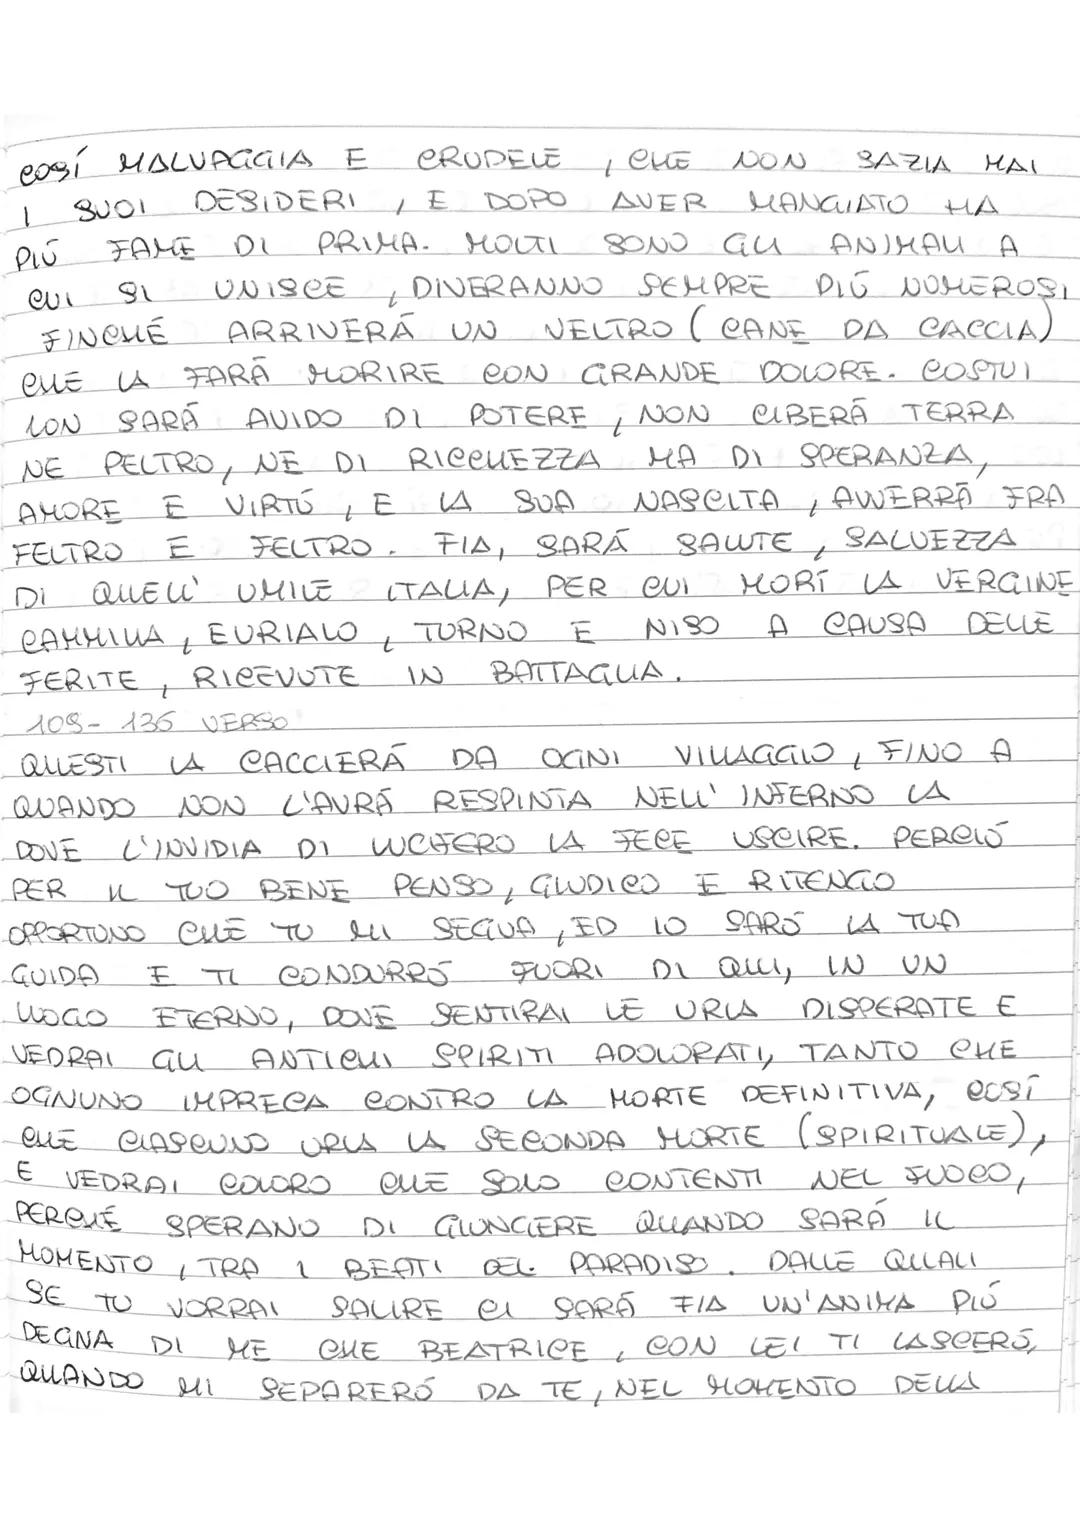 COSÍ MALVAGGIA E CRUDELE, CHE NON SAZIA MAI
I SUOI DESIDERI, E DOPO AVER MANGIATO HA
PIÚ FAME DI PRIMA. MOLTI SONO GLI ANIMALI A
CUI SI UNISCE, DIVERANNO SEMPRE PIÚ NUMEROSI
FINCHÉ ARRIVERÁ UN VELTRO (CANE DA CACCIA)
CHE LA FARÁ MORIRE CON GRANDE DOLORE. COSTUI
NON SARÁ AVIDO DI POTERE, NON CIBERÁ TERRA
NE PELTRO, NE DI RICCHEZZA MA DI SPERANZA,
AMORE E VIRTÚ, E LA SUA NASCITA, AVVERRÁ FRA
FELTRO E FELTRO. FIA, SARÁ SALUTE, SALVEZZA
DI QUELL' UMILE ITALIA, PER CUI MORÍ LA VERGINE
CAMMILLA, EURIALO, TURNO E NISO A CAUSA DELLE
FERITE, RICEVUTE IN BATTAGLIA.
109-136 VERSO
QUESTI LA CACCIERÁ DA OGNI VILLAGGIO, FINO A
QUANDO NON L'AVRÁ RESPINTA NELL' INFERNO LA
DOVE L'INVIDIA DI LUCIFERO LA FECE USCIRE. PERCIÓ
PER IL TUO BENE PENSO, GIUDICO E RITENGO
OPPORTUNO CHE TU MI SEGUA, ED IO SARÓ LA TUA
GUIDA E TI CONDURRÓ FUORI DI QUI, IN UN
LUOGO ETERNO, DOVE SENTIRAI LE URLA DISPERATE E
VEDRAI GLI ANTICHI SPIRITI ADOLORATI, TANTO CHE
OGNUNO IMPRECA CONTRO LA MORTE DEFINITIVA, COSÍ
CHE CIASCUNO URLA LA SECONDA MORTE (SPIRITUALE),
E VEDRAI COLORO CHE SOLO CONTENTI NEL FUOCO,
PERCHÉ SPERANO DI GIUNGERE QUANDO SARÁ IL
MOMENTO, TRA I BEATI DEL PARADISO. DALLE QUALI
SE TU VORRAI SALIRE CI SARÁ FIA UN'ANIMA PIÚ
DEGNA DI ME CHE BEATRICE, CON LEI TI LASCERÓ,
QUANDO MI SEPARERÓ DA TE, NEL MOMENTO DELLA